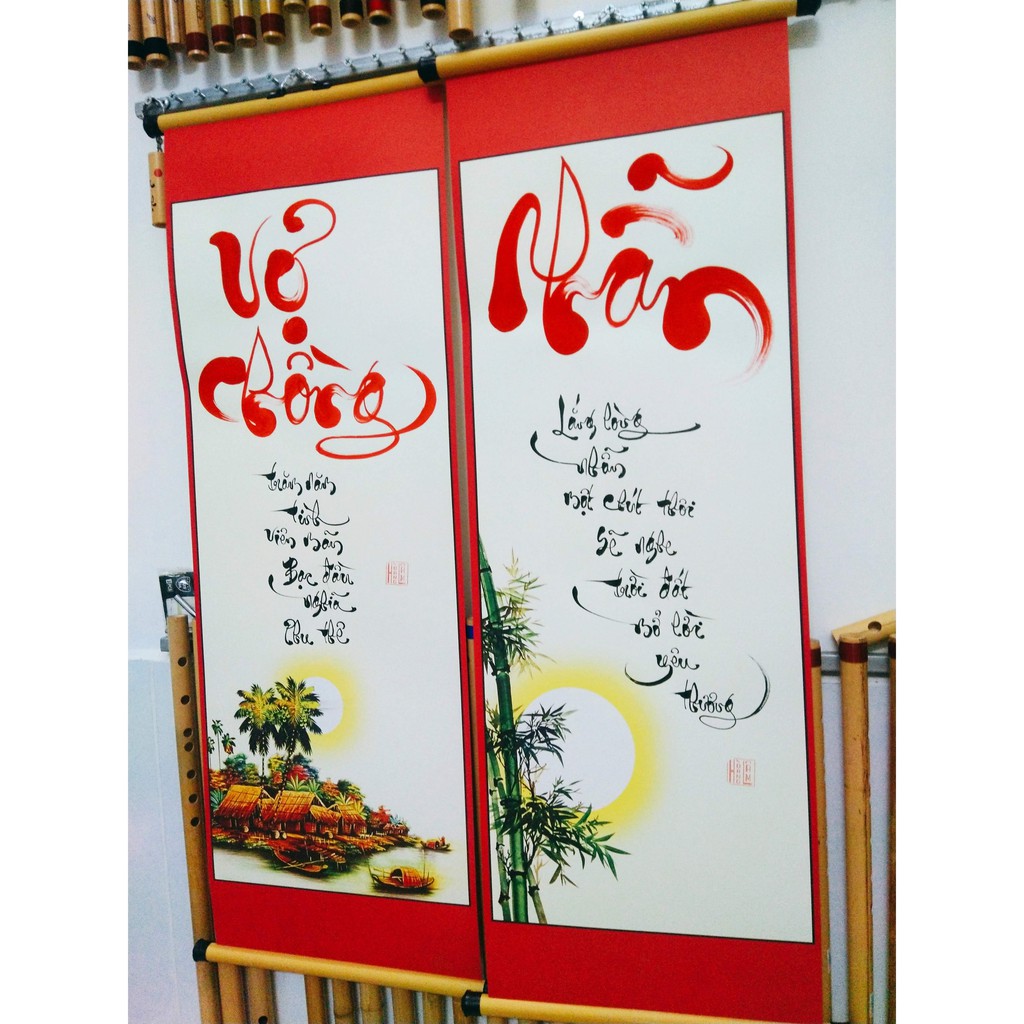 Vợ
Chồng
trăm năm
tình
viên mãn
Bạc đầu
nghĩa
Phu thê
Nhẫn
Lắng lòng
nhẫn
một chút thôi
Sẽ nghe
trời đất
mở lời
yêu
thương